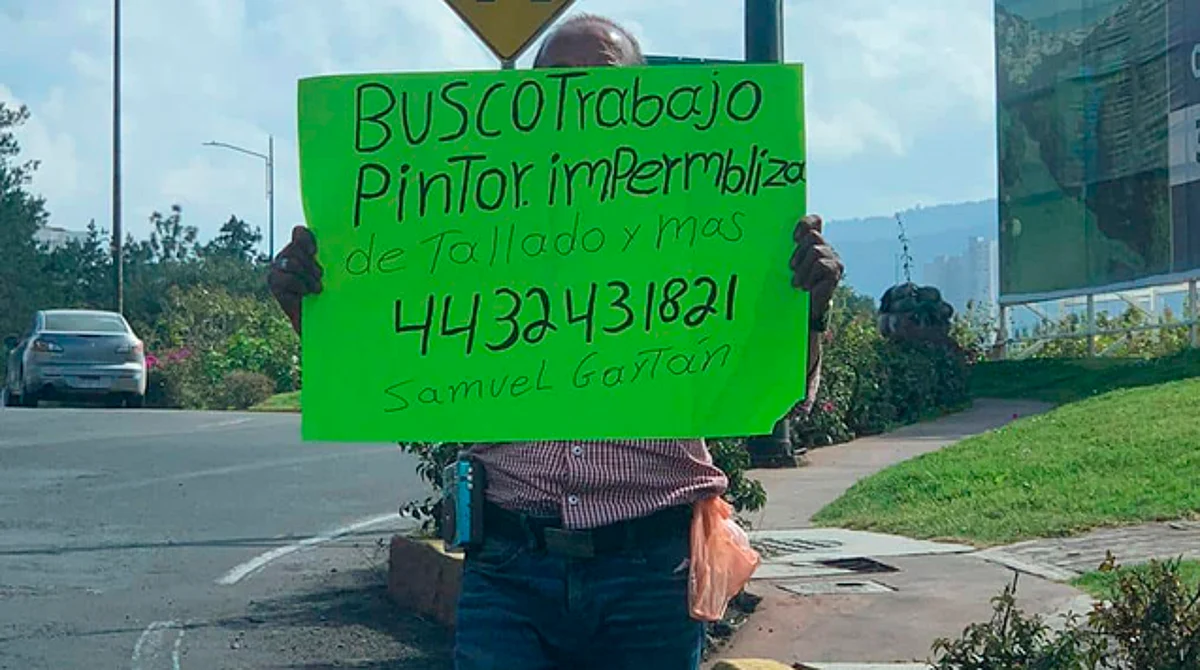 BUSCO Trabajo
PinTor. imPermbliza
de Tallado y mas
4432431821
Samuel Gaytán